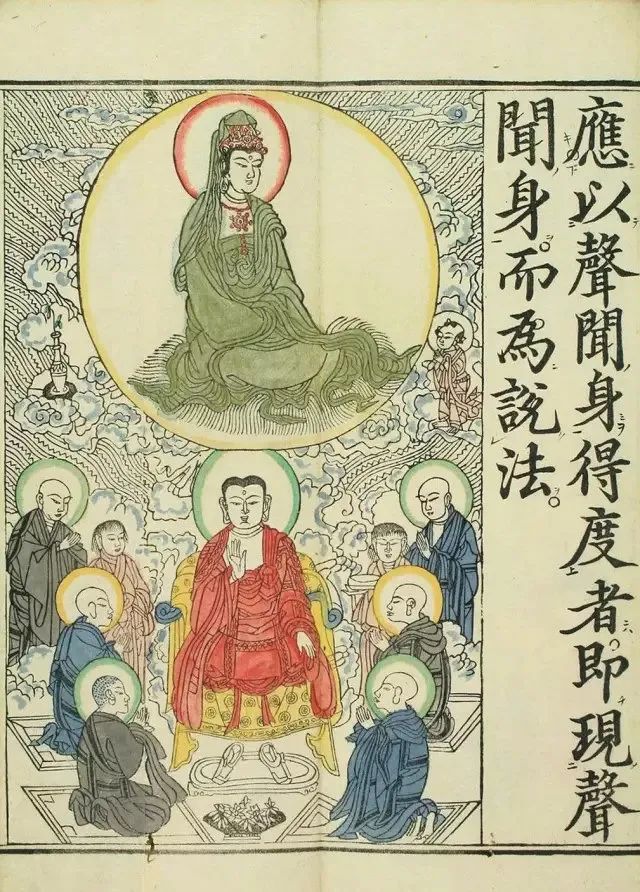 應以聲聞身得度者。即現聲
聞身。而為說法。